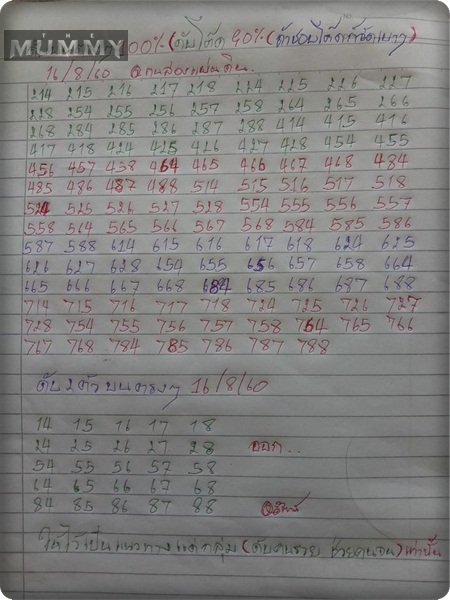 THE
MUMMY 100% (ดับโต๊ด 90% (
16/8/60 อ.คนสองแผ่นดิน.
214 215 216 217 218 224 225 226 227
228 254 255 256 257 258 264 265 266
268 284 285 286 287 288 414 415 416
417 418 424 425 426 427 428 454 455
456 457 458 464 465 466 467 468 484
485 486 487 488 514 515 516 517 518
524 525 526 527 528 554 555 556 557
558 564 565 566 567 568 584 585 586
587 588 614 615 616 617 618 624 625
626 627 628 654 655 656 657 658 664
665 666 667 668 684 685 686 687 688
714 715 716 717 718 724 725 726 727
728 754 755 756 757 758 764 765 766
767 768 784 785 786 787 788
ดับ 2 ตัว บน ตรงๆ 16/8/60
14 15 16 17 18
24 25 26 27 28 ออก..
54 55 56 57 58
64 65 66 67 68
84 85 86 87 88
ให้ไว้เป็นแนวทางแด่กลุ่ม (ดับคนรวย ช่วยคนจน) เท่านั้น